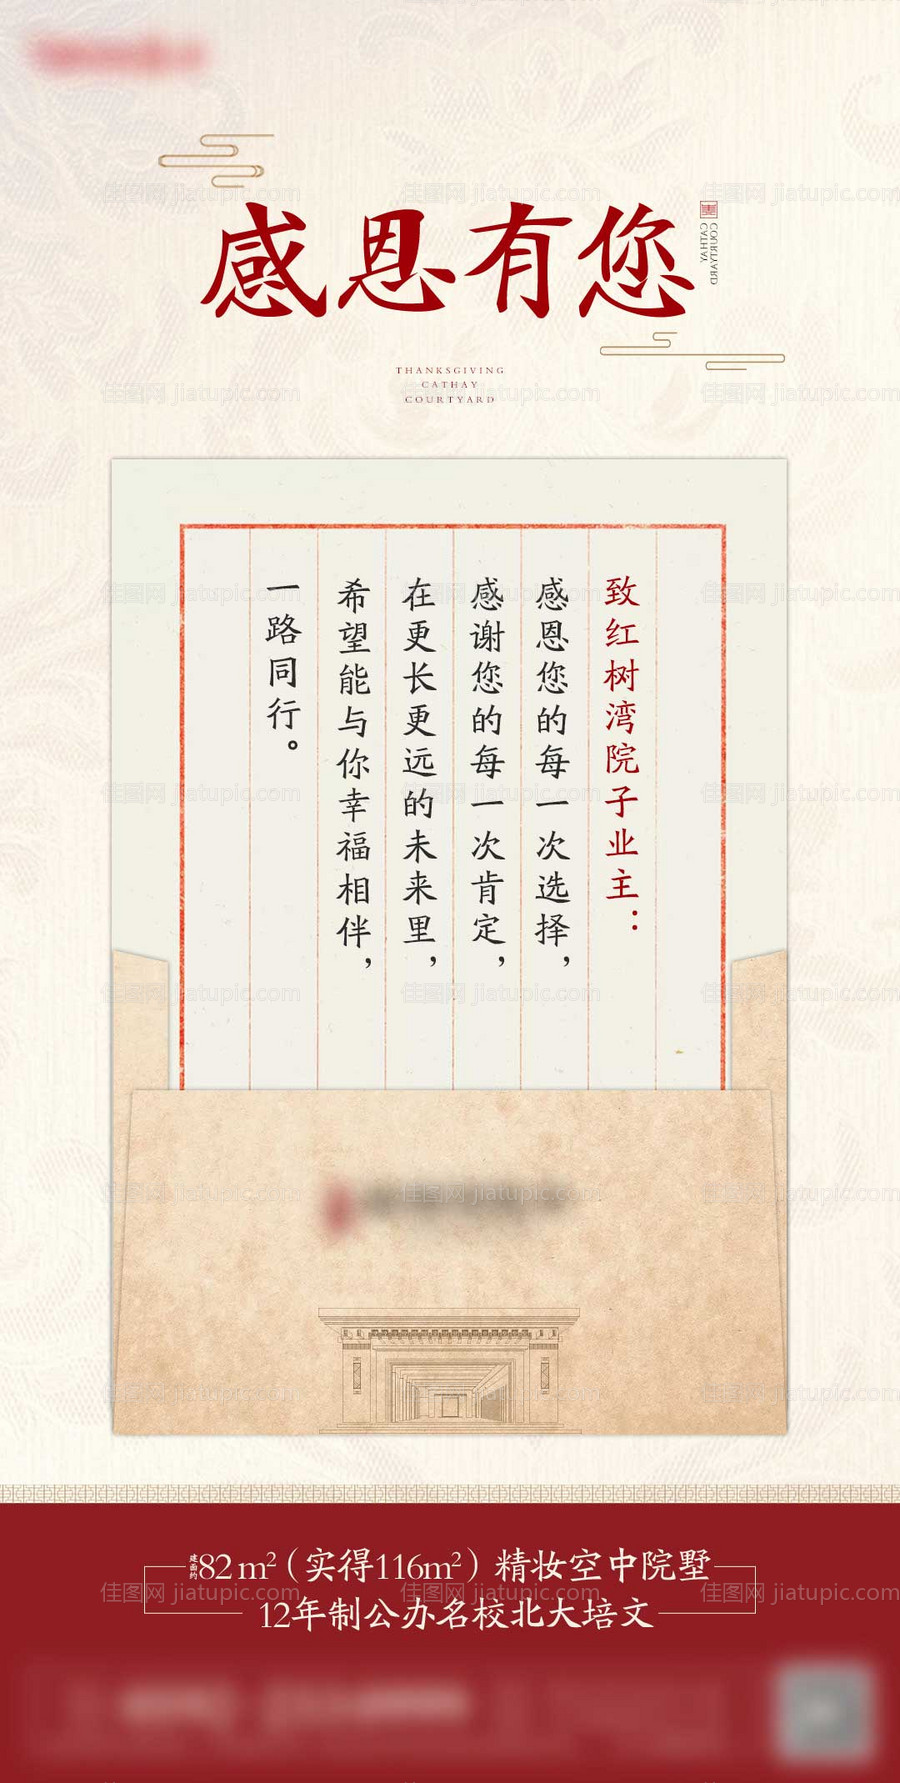 感恩有您
COURTYARD
CATHAY
THANKSGIVING
CATHAY
COURTYARD
致红树湾院子业主：
感恩您的每一次选择，
感谢您的每一次肯定，
在更长更远的未来里，
希望能与你幸福相伴，
一路同行。
建面约82m²（实得116m²）精妆空中院墅
12年制公办名校北大培文
佳图网 jiatupic.com